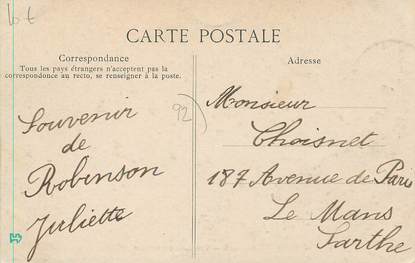 lot
CARTE POSTALE
Correspondance
Tous les pays étrangers n'acceptent pas la
correspondance au recto, se renseigner à la poste.
Adresse
92
Souvenir
de
Robinson
Juliette
Monsieur
Choisnet
187 Avenue de Paris
Le Mans
Sarthe